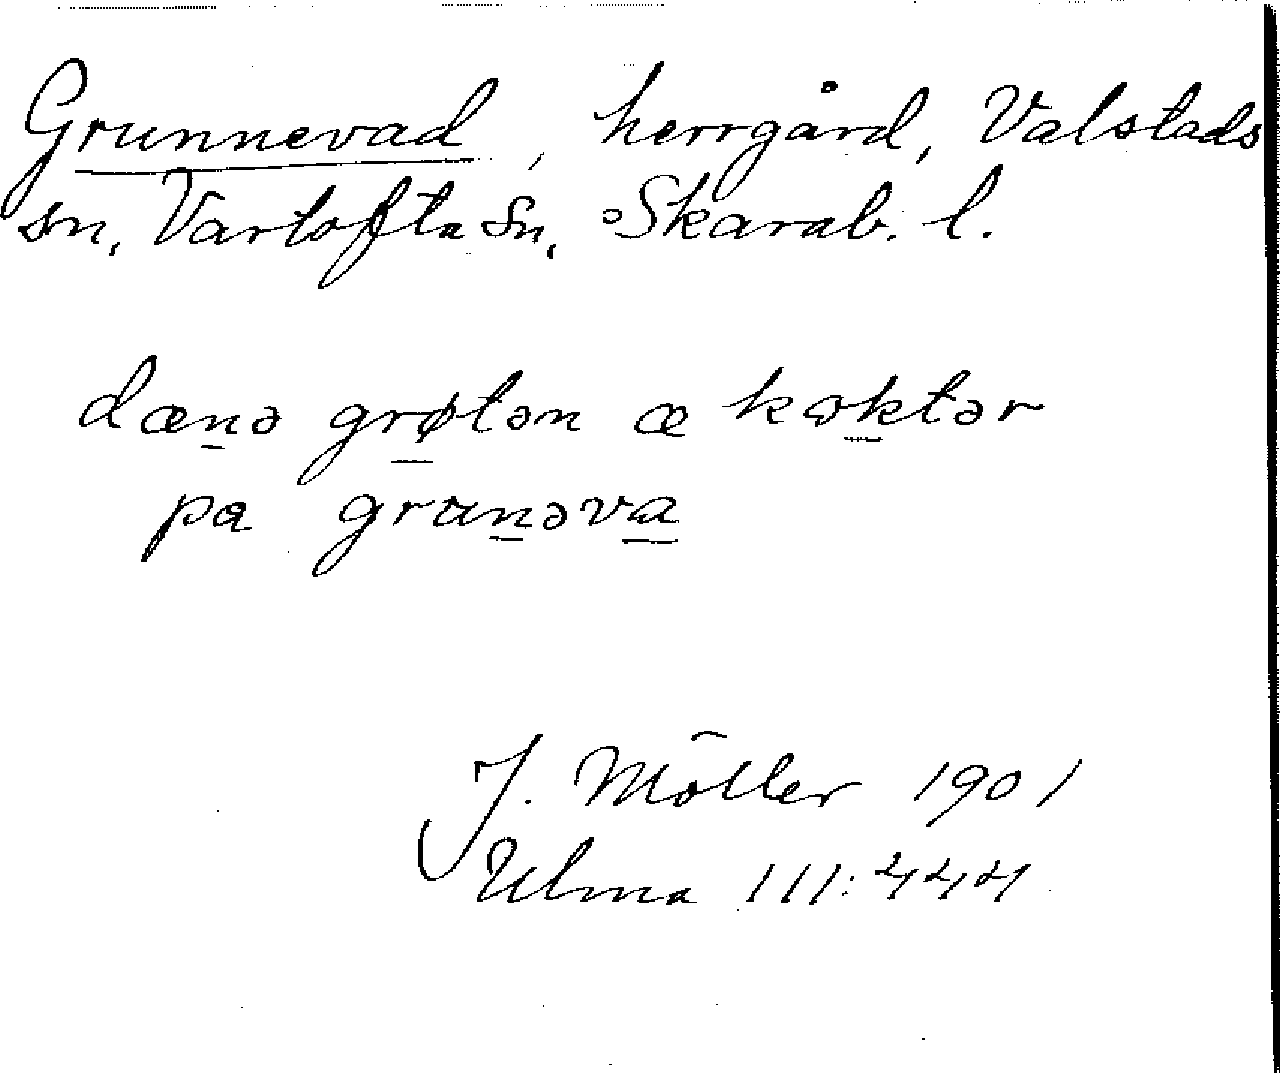 Grunnevad, herrgård, Valstads
sn, Vartofta Sn, Skarab. l.
dænə grøtən æ koktər
pa granəva
J. Möller 1901
Ulma 111:444